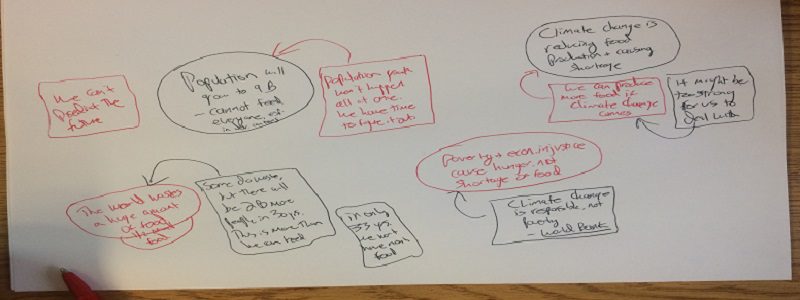 We can't
predict the
future
Population will
grow to 9 B
- cannot feed
everyone
Population
won't happen
all at once
We have time
to figure it out
Climate change is
reducing food
production + causing
shortage
We can produce
more food if
climate change
It might be
too strong
for us to
deal with
The world wastes
a huge amount
of food
food
Some do waste,
but there will
be 2B more
people in 30 yrs.
This is more than
we can feed
in only
33 yrs.
we won't
have
food
Poverty + econ. injustice
cause hunger, not
shortage of food
Climate change
is responsible, not
poverty
- World Bank